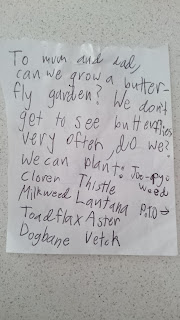 To mum and dad,
can we grow a butter-
fly garden? We don't
get to see butterflies
very often, do we?
We can plant: Joe-pye
Cloren Thistle weed
Milkweed Lantana P.T.O →
Toadflax Aster
Dogbane Vetch